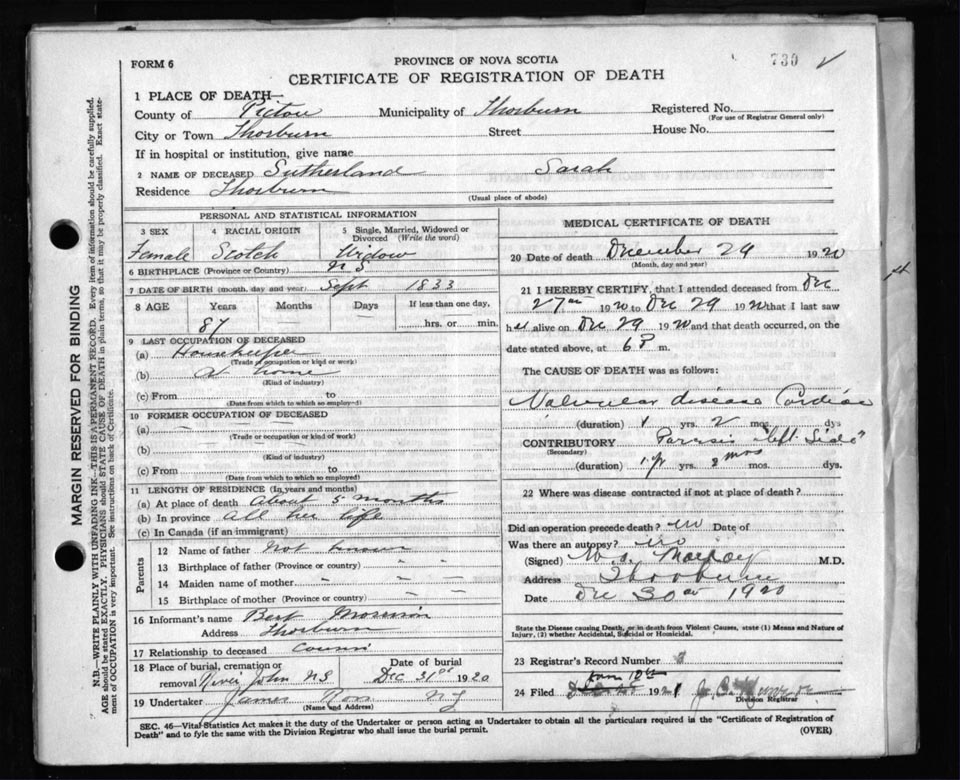 FORM 6
PROVINCE OF NOVA SCOTIA
730
CERTIFICATE OF REGISTRATION OF DEATH
1 PLACE OF DEATH—
County of Pictou Municipality of Thorburn Registered No.
(For use of Registrar General only)
City or Town Thorburn Street House No.
If in hospital or institution, give name
2 NAME OF DECEASED Sutherland Sarah
Residence Thorburn
(Usual place of abode)
PERSONAL AND STATISTICAL INFORMATION
3 SEX 4 RACIAL ORIGIN 5 Single, Married, Widowed or Divorced (Write the word)
Female Scotch Widow
6 BIRTHPLACE (Province or Country) N S
7 DATE OF BIRTH (month, day and year) Sept 1833
8 AGE Years Months Days If less than one day,
87 hrs. or min.
9 LAST OCCUPATION OF DECEASED
(a) Housekeeper
(Trade or occupation or kind or work)
(b) At home
(Kind of industry)
(c) From to
(Date from which to which so employed)
10 FORMER OCCUPATION OF DECEASED
(a)
(Trade or occupation or kind of work)
(b)
(Kind of industry)
(c) From to
(Date from which to which so employed)
11 LENGTH OF RESIDENCE (In years and months)
(a) At place of death About 5 months
(b) In province All her life
(c) In Canada (if an immigrant)
Parents
12 Name of father Not known
13 Birthplace of father (Province or country)
14 Maiden name of mother
15 Birthplace of mother (Province or country)
16 Informant's name Bert
Address Thorburn
17 Relationship to deceased Cousin
18 Place of burial, cremation or Date of burial
removal River John NS Dec 31st 1920
19 Undertaker James Ross NS
(Name and Address)
MEDICAL CERTIFICATE OF DEATH
20 Date of death December 29 1920
(Month, day and year)
21 I HEREBY CERTIFY, that I attended deceased from Dec
27th 1920 to Dec 29 1920 that I last saw
her alive on Dec 29 1920 and that death occurred, on the
date stated above, at 6 P m.
The CAUSE OF DEATH was as follows:
Valvular disease Cardiac
(duration) 1 yrs. 2 mos. dys.
CONTRIBUTORY Paresis "left Side"
(Secondary)
(duration) 1 yr yrs. 2 mos mos. dys.
22 Where was disease contracted if not at place of death?
Did an operation precede death? no Date of
Was there an autopsy? no
(Signed) M.D.
Address Thorburn
Date Dec 30th 1920
State the Disease causing Death, or in death from Violent Causes, state (1) Means and Nature of
Injury, (2) whether Accidental, Suicidal or Homicidal.
23 Registrar's Record Number 3
Jan 10th
24 Filed 1921
Division Registrar
SEC. 46—Vital Statistics Act makes it the duty of the Undertaker or person acting as Undertaker to obtain all the particulars required in the "Certificate of Registration of
Death" and to fyle the same with the Division Registrar who shall issue the burial permit.
(OVER)
MARGIN RESERVED FOR BINDING
N.B.—WRITE PLAINLY WITH UNFADING INK—THIS IS A PERMANENT RECORD. Every item of information should be carefully supplied.
AGE should be stated EXACTLY. PHYSICIANS should STATE CAUSE OF DEATH in plain terms, so that it may be properly classified. Exact state-
ment of OCCUPATION is very important. See instructions on back of Certificate.